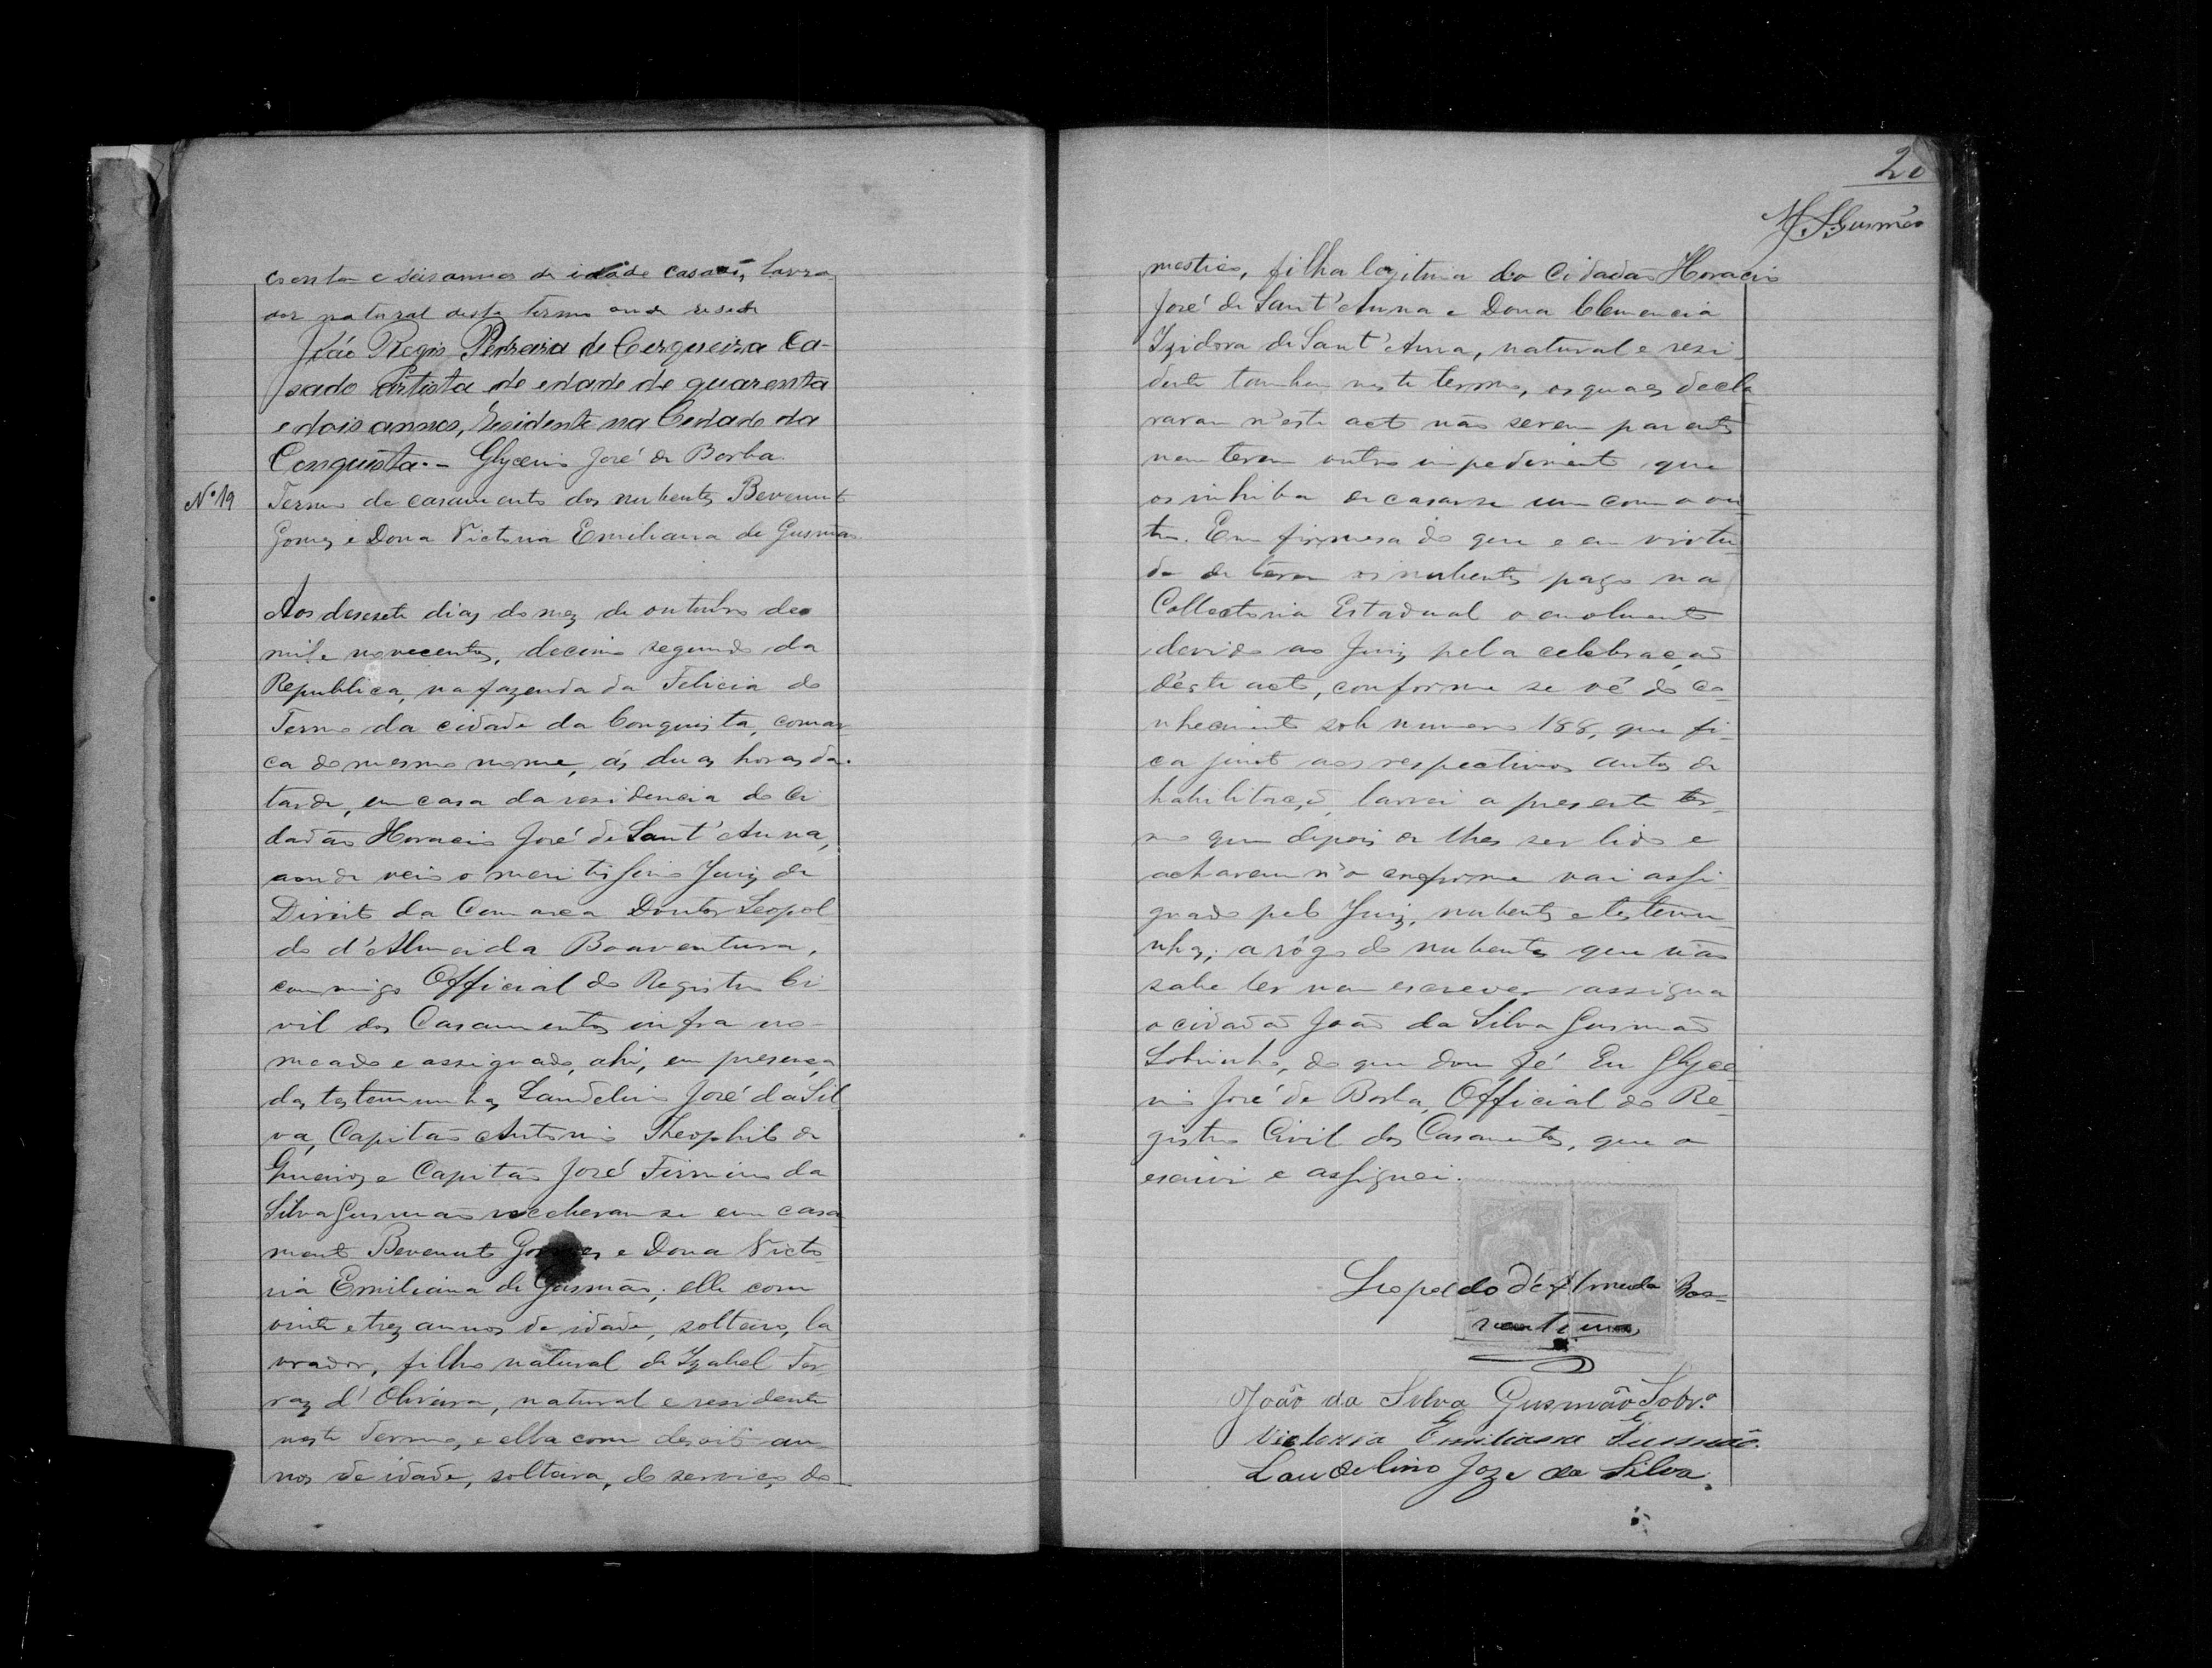 centa e seis annos de idade casado, lavra
dor natural deste termo onde reside
João Regis Pedreira de Cerqueira Ca-
sado Artista de edade de quarenta
e dois annos, Residente na Cidade da
Conquista.- Glycerio José de Borba
Nº 19
Termo de casamento dos nubentes Bevenuto
Gomes e Dona Victoria Emiliana de Gusmão.
Aos desesete dias do mez de outubro de
mil e novecentos, decimo segundo da
Republica, na fazenda da Felicia do
Termo da cidade da Conquista, comar
ca do mesmo nome, ás duas horas da
tarde, em casa da residencia do Ci
dadão Horacio José de Sant'Anna,
aonde veio o meritissimo Juiz de
Direito da Comarca Doutor Leopol
do d'Almeida Boaventura,
commigo Official do Registro Ci
vil dos Casamentos infra no-
meado e assignado, ahi, em presença
das testemunhas Laudelino José da Sil
va, Capitão Antonio Theophilo de
Queiroz e Capitão José Firmino da
Silva Gusmão receberam-se em casa
mento Bevenuto Gomes e Dona Victo
ria Emiliana de Gusmão; elle com
vinte e trez annos de idade, solteiro, la
vrador, filho natural de Izabel Fer
raz d'Oliveira, natural e residente
neste Termo, e ella com desoito an-
nos de idade, solteira, do serviço do
20
M. S. Gusmão
mestico, filha legitima do Cidadão Horacio
José de Sant'Anna e Dona Clemencia
Izidora de Sant'Anna, natural e resi
dente tambem neste termo, os quaes decla
raram n'este acto não serem parentes
nem terem outro impedimento que
os inhiba de casar-se um com o ou
tro. Em firmesa do que e em virtu
de de terem os nubentes pago na
Collectoria Estadual o emolumento
devido ao Juiz pela celebração
d'éste acto, conforme se vê do co
nhecimento sob numero 188, que fi-
ca junto aos respectivos autos de
habilitação, lavrei o presente ter-
mo que depois de lhes ser lido e
acharem n'o conforme vai assi-
gnado pelo Juiz, nubentes e testemu
nhas; a rógo do nubente que não
sabe ler nem escrever assigna
o cidadão João da Silva Gusmão
Sobrinho, do que dou fé. Eu Glyce
rio José de Borba, Official do Re-
gistro Civil dos Casamentos, que o
escrivi e assignei.
Leopoldo d'Almeida Boa-
ventura
João da Silva Gusmão Sobrº
Victoria Emiliana Gusmão.
Laudelino Joze da Silva.